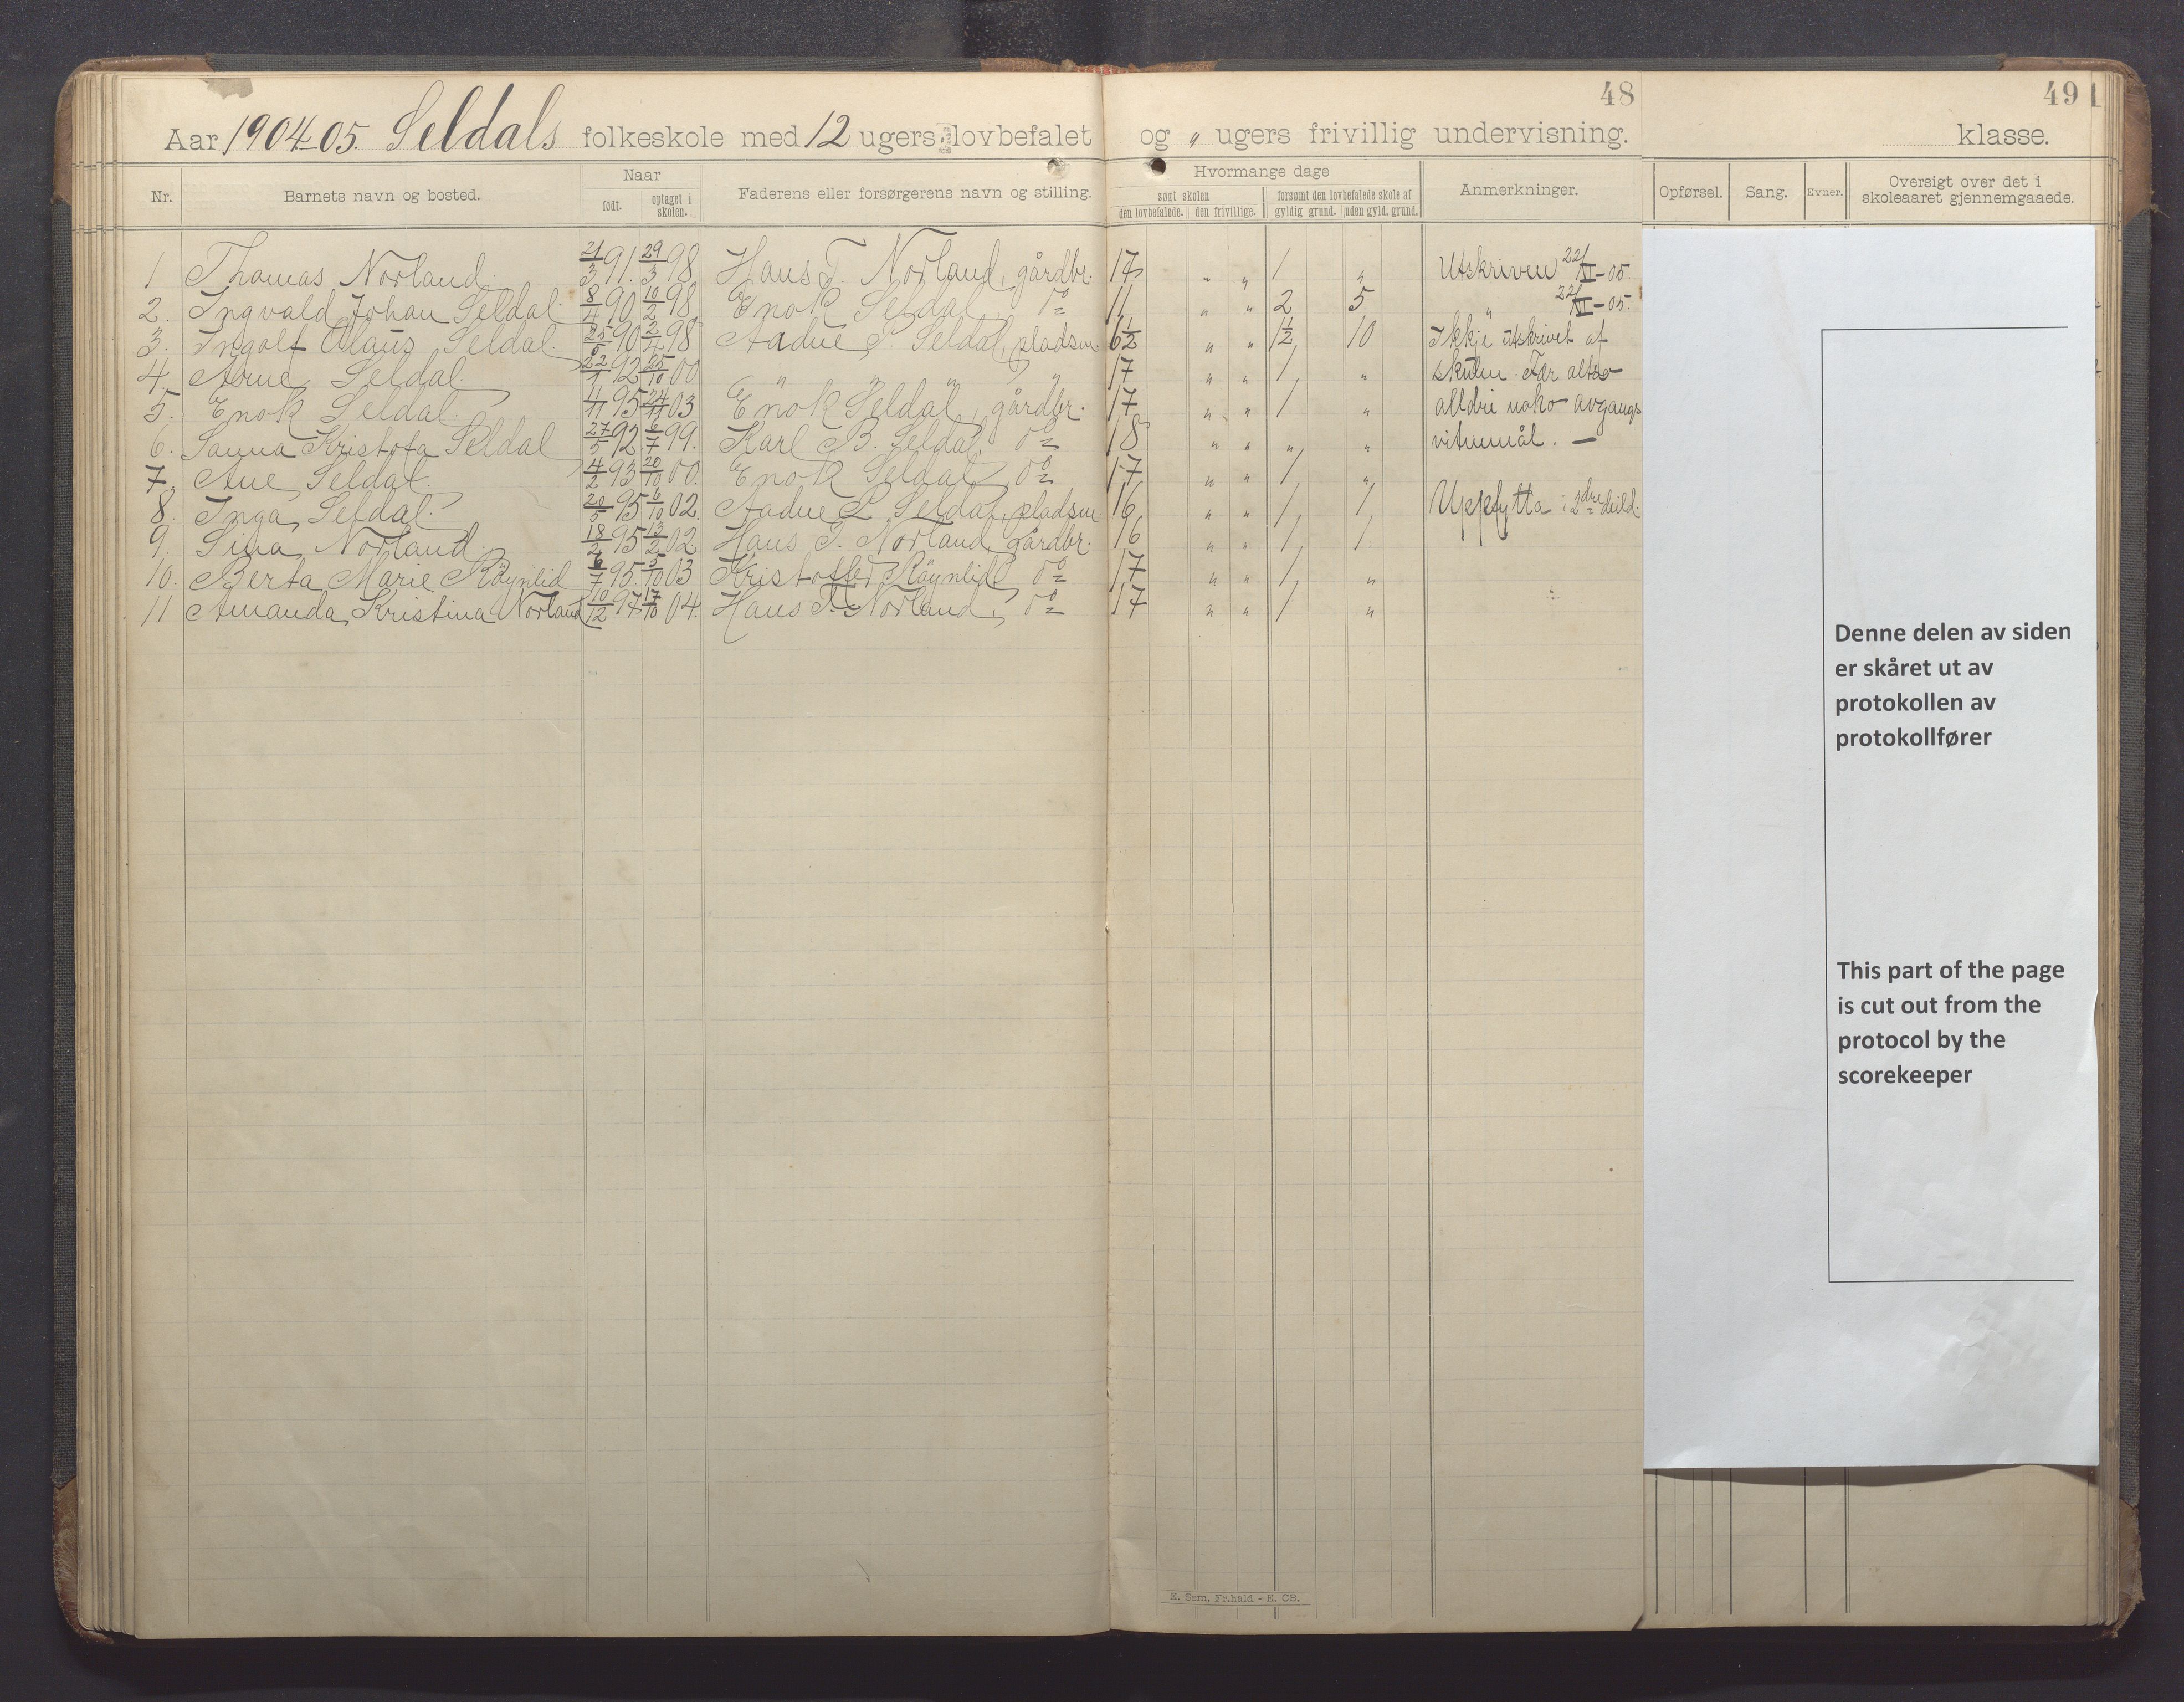 48
49
Aar 1904-05. Seldals folkeskole med 12 ugers lovbefalet og " ugers frivillig undervisning.
klasse.
Nr. Barnets navn og bosted. Naar født. optaget i skolen. Faderens eller forsørgerens navn og stilling. Hvormange dage søgt skolen den lovbefalede. den frivillige. forsømt den lovbefalede skole af gyldig grund. uden gyld. grund. Anmerkninger.
Opførsel. Sang. Evner. Oversigt over det i skoleaaret gjennemgaaede.
1 Thomas Norland. 21/3 91. 29/3 98 Hans T. Norland, gårdbr. 17 " " 1 " Utskriven 22/XI-05.
2. Ingvald Johan Seldal. 8/4 90 10/2 98 Enok Seldal, do 11 " " 2 5 " 22/XI-05.
3. Ingolf Olaus Seldal. 25/5 90 2/4 98 Aadne P. Seldal, pladsm. 6½ " " 1½ 10 Ikkje utskrivet af
4. Arne Seldal. 22/1 92 25/10 00 " " " " 17 " " 1 " skulen. Får altso
5. Enok Seldal. 4/11 95 24/11 03 Enok Seldal, gårdbr. 17 " " 1 " alldri noko avgangs
6. Sanna Kristofa Seldal 27/5 92 6/7 99. Karl B. Seldal, do 18 " " " " vitnemål. —
7. Ane Seldal. 4/2 93 20/10 00. Enok Seldal, do 17 " " 1 "
8. Inga Seldal. 20/5 95 6/10 02. Aadne P. Seldal, pladsm. 16 " " 1 1 Uppflytta i 2dre deild.
9. Sina Norland. 18/2 95 13/2 02 Hans T. Norland, gårdbr. 16 " " 1 1
10. Berta Marie Röynlid 6/7 95. 5/10 03 Kristoffer Röynlid do 17 " " 1 "
11 Amanda Kristina Norland 10/12 97 17/10 04. Hans T. Norland, do 17 " " 1 "
Denne delen av siden
er skåret ut av
protokollen av
protokollfører
This part of the page
is cut out from the
protocol by the
scorekeeper
E. Sem, Fr.hald - E. CB.